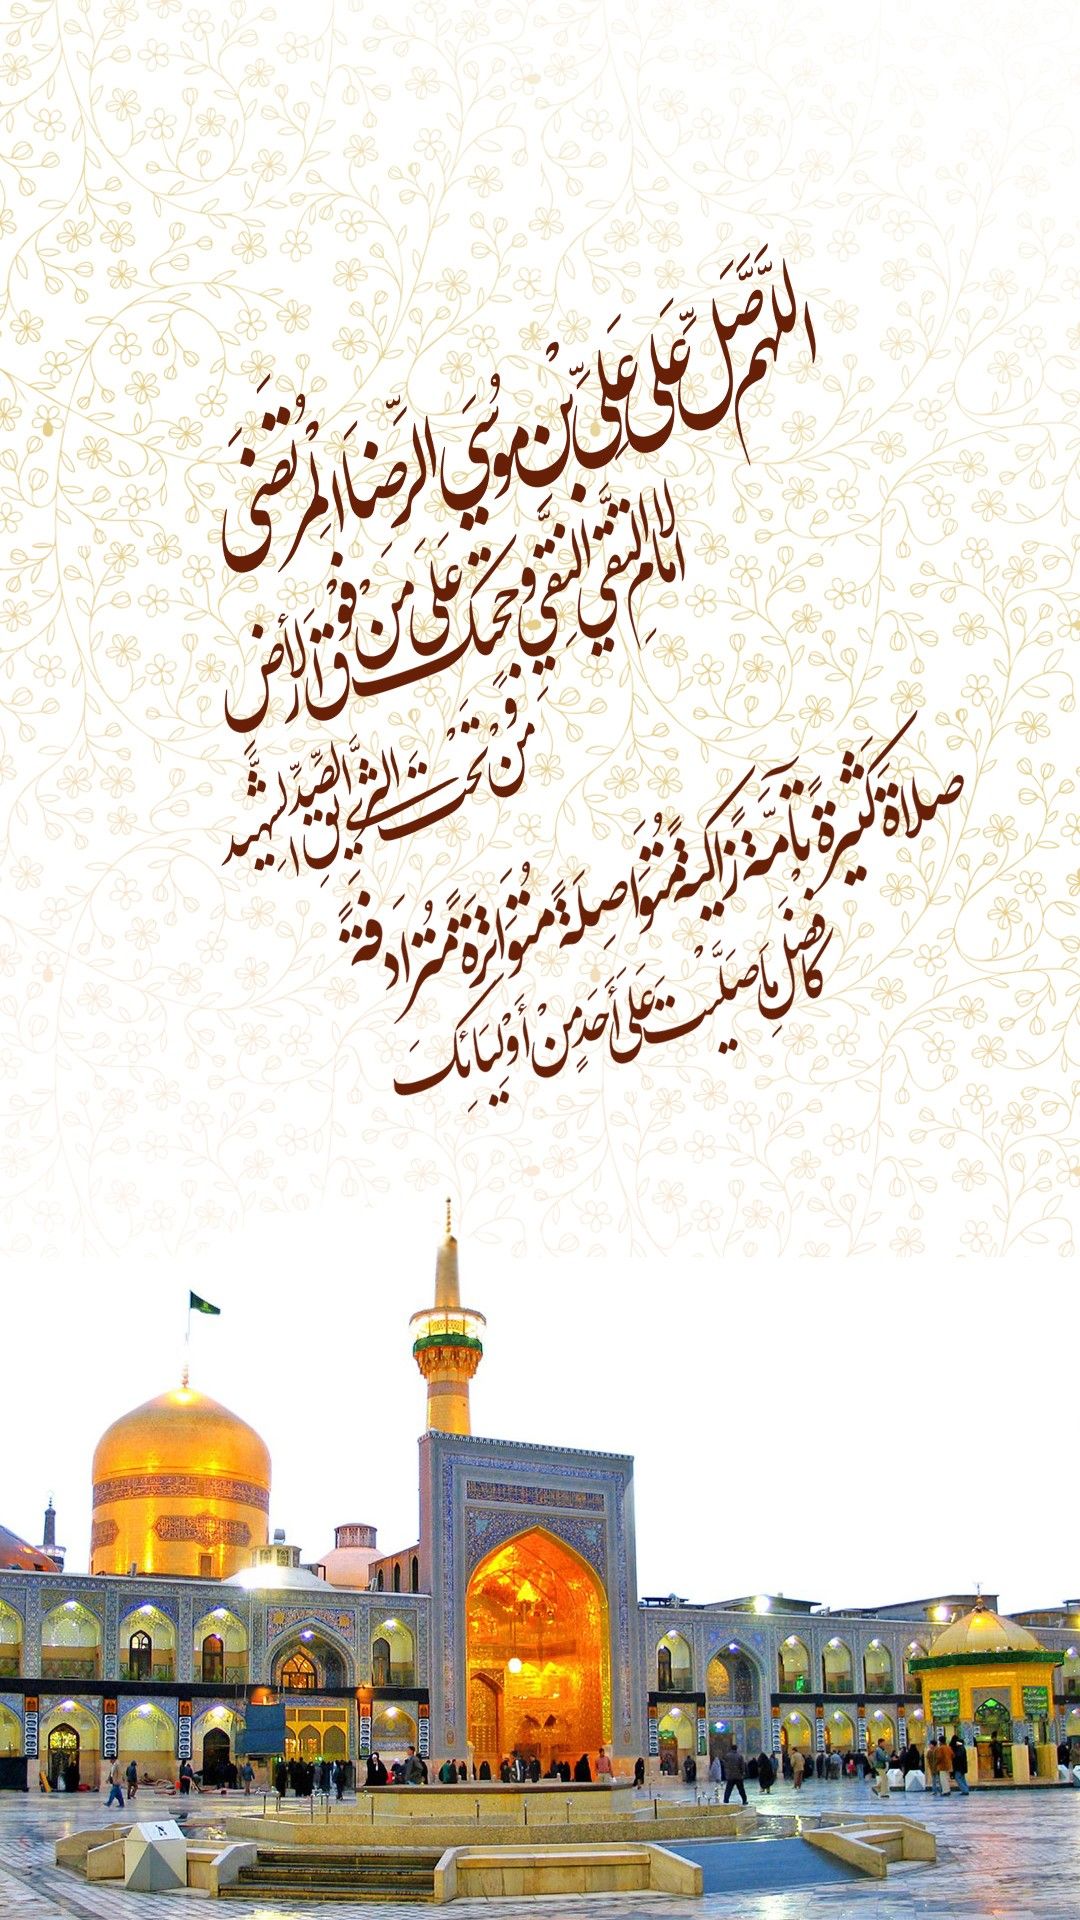 اللَّهُمَّ صَلِّ عَلَى عَلِيِّ بْنِ مُوسَي الرِّضَا الْمُرْتَضَى
الامَامِ التَّقِيِّ النَّقِيِّ وَ حُجَّتِكَ عَلَى مَنْ فَوْقَ الأَرْضِ
وَ مَنْ تَحْتَ الثَّرَى الصِّدِّيقِ الشَّهِيدِ
صَلاةً كَثِيرَةً تَامَّةً زَاكِيَةً مُتَوَاصِلَةً مُتَوَاتِرَةً مُتَرَادِفَةً
كَأَفْضَلِ مَا صَلَّيْتَ عَلَى أَحَدٍ مِنْ أَوْلِيَائِكَ